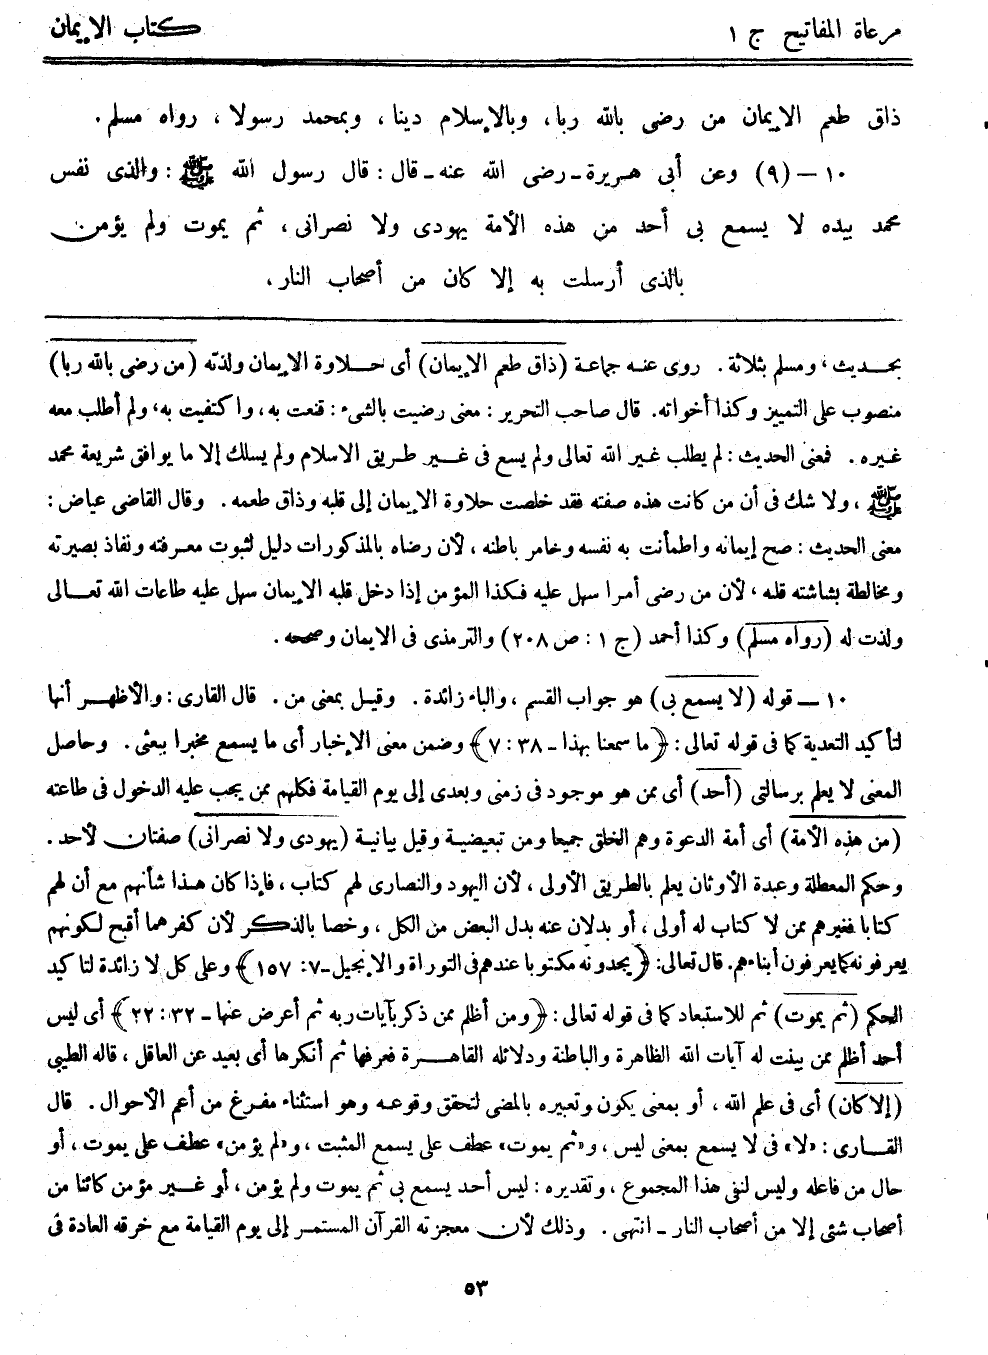 مرعاة المفاتيح ج ١
كتاب الإيمان
ذاق طعم الإيمان من رضى بالله ربا، وبالإسلام دينا، وبمحمد رسولا، رواه مسلم.
١٠ – (٩) وعن أبى هريرة - رضى الله عنه - قال: قال رسول الله ﷺ: والذى نفس
محمد بيده لا يسمع بى أحد من هذه الأمة يهودى ولا نصرانى، ثم يموت ولم يؤمن
بالذى أرسلت به إلا كان من أصحاب النار،
بحديث، ومسلم بثلاثة. روى عنه جماعة (ذاق طعم الإيمان) أى حلاوة الإيمان ولذته (من رضى بالله ربا)
منصوب على التمييز وكذا أخواته. قال صاحب التحرير: معنى رضيت بالشىء: قنعت به، واكتفيت به، ولم أطلب معه
غيره. فمعنى الحديث: لم يطلب غير الله تعالى ولم يسع فى غير طريق الاسلام ولم يسلك إلا ما يوافق شريعة محمد
ﷺ، ولا شك فى أن من كانت هذه صفته فقد خلصت حلاوة الإيمان إلى قلبه وذاق طعمه. وقال القاضى عياض:
معنى الحديث: صح إيمانه واطمأنت به نفسه وخامر باطنه، لأن رضاه بالمذكورات دليل لثبوت معرفته ونفاذ بصيرته
ومخالطة بشاشته قلبه، لأن من رضى أمرا سهل عليه فكذا المؤمن إذا دخل قلبه الإيمان سهل عليه طاعات الله تعالى
ولذت له (رواه مسلم) وكذا أحمد (ج ١: ص ٢٠٨) والترمذى فى الايمان وصححه.
١٠ – قوله (لا يسمع بى) هو جواب القسم، والباء زائدة. وقيل بمعنى من. قال القارى: والأظهر أنها
لتأكيد التعدية كما فى قوله تعالى: ﴿ما سمعنا بهذا - ٣٨: ٧﴾ وضمن معنى الإخبار أى ما يسمع مخبرا ببعثى. وحاصل
المعنى لا يعلم برسالتى (أحد) أى ممن هو موجود فى زمنى وبعدى إلى يوم القيامة فكلهم ممن يجب عليه الدخول فى طاعته
(من هذه الأمة) أى أمة الدعوة وهم الخلق جميعا ومن تبعيضية وقيل بيانية (يهودى ولا نصرانى) صفتان لأحد.
وحكم المعطلة وعبدة الأوثان يعلم بالطريق الأولى، لأن اليهود والنصارى لهم كتاب، فإذا كان هذا شأنهم مع أن لهم
كتابا فغيرهم ممن لا كتاب له أولى، أو بدلان عنه بدل البعض من الكل، وخصا بالذكر لأن كفرهما أقبح لكونهم
يعرفونه كما يعرفون أبناءهم. قال تعالى: ﴿يجدونه مكتوبا عندهم فى التوراة والإنجيل - ٧: ١٥٧﴾ وعلى كل لا زائدة لتاكيد
الحكم (ثم يموت) ثم للاستبعاد كما فى قوله تعالى: ﴿ومن أظلم ممن ذكر بآيات ربه ثم أعرض عنها - ٣٢: ٢٢﴾ أى ليس
أحد أظلم ممن بينت له آيات الله الظاهرة والباطنة ودلائله القاهرة فعرفها ثم أنكرها أى بعيد عن العاقل، قاله الطيبى
(إلا كان) أى فى علم الله، أو بمعنى يكون وتعبيره بالمضى لتحقق وقوعه وهو استثناء مفرغ من أعم الأحوال. قال
القارى: «لا» فى لا يسمع بمعنى ليس، و«ثم يموت» عطف على يسمع المثبت، و«لم يؤمن» عطف على يموت، أو
حال من فاعله وليس لنفى هذا المجموع، وتقديره: ليس أحد يسمع بى ثم يموت ولم يؤمن، أو غير مؤمن كائنا من
أصحاب شئى إلا من أصحاب النار - انتهى. وذلك لأن معجزته القرآن المستمر إلى يوم القيامة مع خرقه العادة فى
٥٣